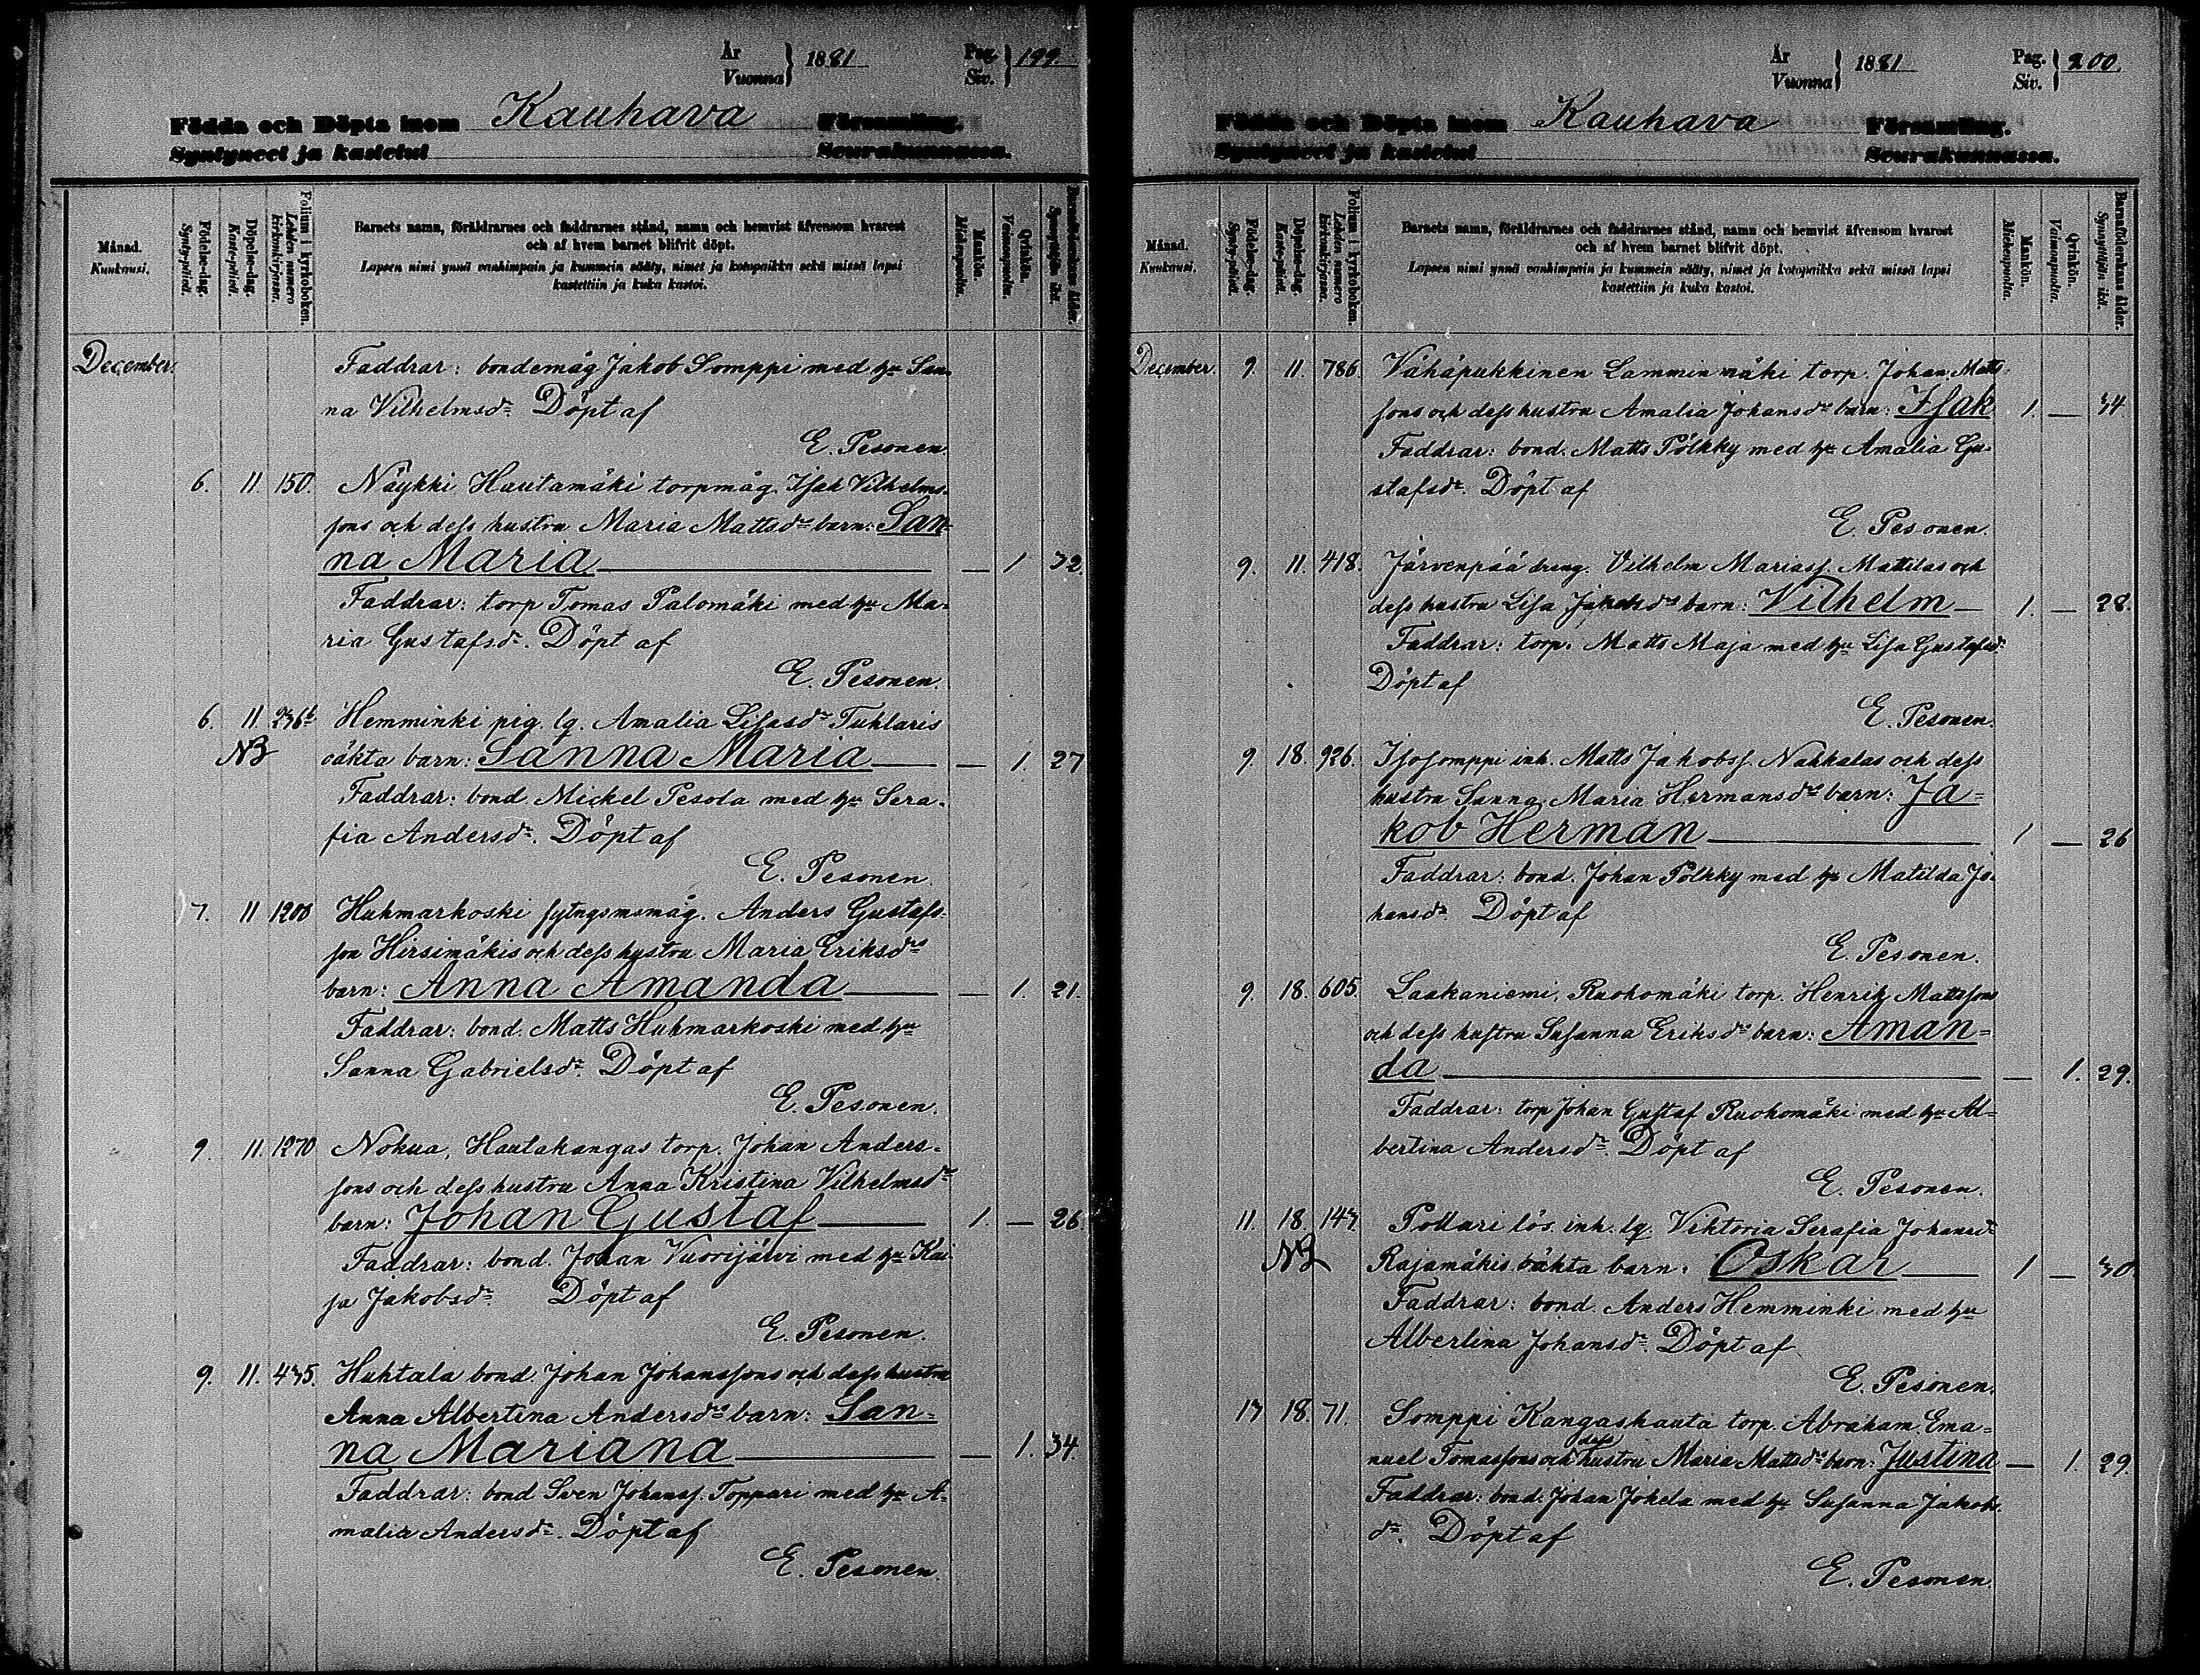 År Vuonna } 1881 Pag. Siv. } 199.
Födda och Döpta inom Kauhava Församling.
Syntyneet ja kastetut Seurakunnassa.
Månad. Kuukausi.
Födelse-dag. Synty-päivä.
Döpelse-dag. Kaste-päivä.
Folium i kyrkoboken. Lehden numero kirkonkirjassa.
Barnets namn, föräldrarnes och faddrarnes stånd, namn och hemvist äfvensom hvarest
och af hvem barnet blifvit döpt.
Lapsen nimi ynnä vanhimpain ja kummein sääty, nimet ja kotopaikka sekä missä lapsi
kastettiin ja kuka kastoi.
Mankön. Miehenpuolta.
Qvinkön. Vaimonpuolta.
Barnaföderskans ålder. Synnyttäjän ikä.
December. Faddrar: bondemåg Jakob Somppi med hu San-
na Vilhelmsdr. Döpt af
E. Pesonen.
6. 11. 150. Näykki Hautamäki torpmåg. Isak Vilhelms-
sons och dess hustru Maria Mattsdrs barn: San-
na Maria — 1 32.
Faddrar: torp Tomas Palomäki med hu Ma-
ria Gustafsdr. Döpt af
E. Pesonen.
6. 11 236b Hemminki pig. lg. Amalia Lisasdr Tuhlaris
NB oäkta barn: Sanna Maria — 1. 27
Faddrar: bond. Mickel Pesola med hu Sera-
fia Andersdr. Döpt af
E. Pesonen.
7. 11 1200 Huhmarkoski sytngsmsmåg. Anders Gustafs-
son Hirsimäkis och dess hustru Maria Eriksdrs
barn: Anna Amanda — 1. 21.
Faddrar: bond. Matts Huhmarkoski med hu
Sanna Gabrielsdr. Döpt af
E. Pesonen.
9. 11. 1270 Nokua, Hautakangas torp. Johan Anders-
sons och dess hustru Anna Kristina Vilhelmsdrs
barn: Johan Gustaf 1. — 26
Faddrar: bond. Johan Vuorijärvi med hu Kai
sa Jakobsdr. Döpt af
E. Pesonen.
9. 11. 435. Huhtala bond. Johan Johanssons och dess hustru
Anna Albertina Andersdrs barn: San-
na Mariana — 1. 34.
Faddrar: bond Sven Johanss. Toppari med hu A-
malia Andersdr. Döpt af
E. Pesonen.
År Vuonna } 1881 Pag. Siv. } 200.
Födda och Döpta inom Kauhava Församling.
Syntyneet ja kastetut Seurakunnassa.
Månad. Kuukausi.
Födelse-dag. Synty-päivä.
Döpelse-dag. Kaste-päivä.
Folium i kyrkoboken. Lehden numero kirkonkirjassa.
Barnets namn, föräldrarnes och faddrarnes stånd, namn och hemvist äfvensom hvarest
och af hvem barnet blifvit döpt.
Lapsen nimi ynnä vanhimpain ja kummein sääty, nimet ja kotopaikka sekä missä lapsi
kastettiin ja kuka kastoi.
Mankön. Miehenpuolta.
Qvinkön. Vaimonpuolta.
Barnaföderskans ålder. Synnyttäjän ikä.
December. 9. 11. 786. Vähäpukkinen Lamminmäki torp. Johan Matts
sons och dess hustru Amalia Johansdrs barn: Isak 1. — 34
Faddrar: bond. Matts Pölkky med hu Amalia Gu-
stafsdr. Döpt af
E. Pesonen.
9. 11. 418. Järvenpää dreng. Vilhelm Mariass. Mattilas och
dess hustru Lisa Jakobsdrs barn: Vilhelm 1. — 28.
Faddrar: torp. Matts Maja med hu Lisa Gustafsdr.
Döpt af
E. Pesonen.
9. 18. 926. Isosomppi inh. Matts Jakobss. Nahkalas och dess
hustru Sanna Maria Hermansdrs barn: Ja-
kob Herman 1 — 26
Faddrar: bond. Johan Pölkky med hu Matilda Jo-
hansdr. Döpt af
E. Pesonen.
9. 18. 605. Laakaniemi, Ruohomäki torp. Henrik Mattssons
och dess hustru Susanna Eriksdrs barn: Aman-
da — 1. 29.
Faddrar: torp Johan Gustaf Ruohomäki med hu Al-
bertina Andersdr. Döpt af
E. Pesonen.
11. 18. 143. Pollari lös. inh. lg. Viktoria Serafia Johansdr
NB Rajamäkis oäkta barn: Oskar 1 — 30.
Faddrar: bond. Anders Hemminki med hu
Albertina Johansdr. Döpt af
E. Pesonen.
13 18. 71. Somppi Kangashauta torp. Abraham Ema-
nuel Tomassons och dess hustru Maria Mattsdrs barn: Justina — 1. 29.
Faddrar: bond. Johan Jokela med hu Susanna Jakobs-
dr. Döpt af
E. Pesonen.